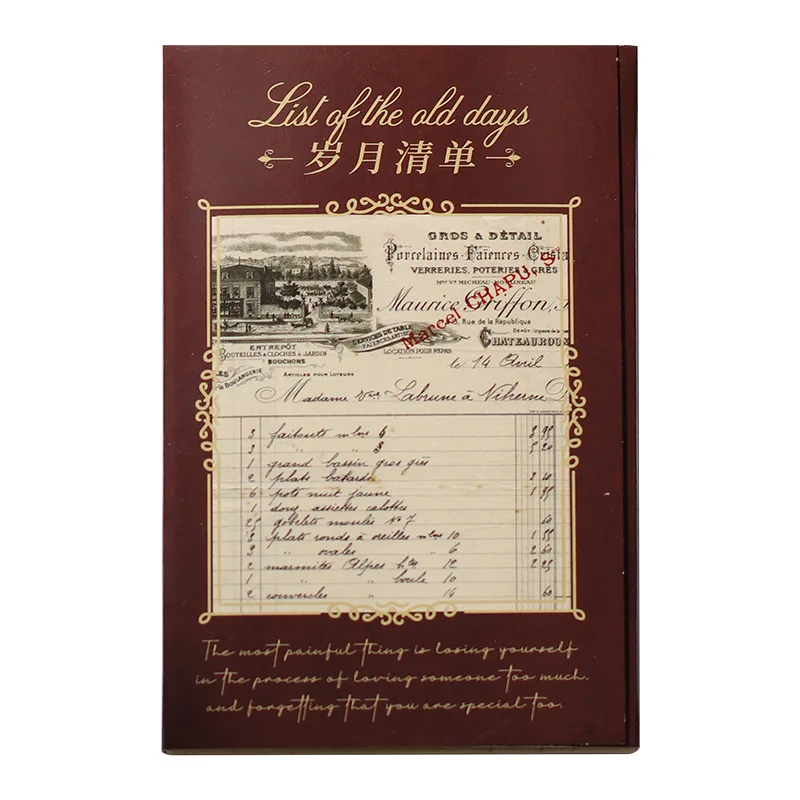 List of the old days
岁月清单
GROS & DÉTAIL
Porcelaines-Faïences-Crista
VERRERIES, POTERIES & GRÈS
Maurice Griffon, S
Marcel CHAPU, S
Rue de la République
CHATEAUROUX
SERVICES DE TABLE
ENTREPÔT
BOUTEILLES & CLOCHES À JARDIN
LOCATION POUR REPAS
BOUCHONS
le 14 Avril
la BOULANGERIE
ARTICLES POUR
Madame Vve Labrune à Niherne
3 faitouts mlns 4 3 95
3 " " 3 5 20
1 grand bassin gros grès
2 plats batards 3 40
6 pots nuit jaune 1 95
1 douz assiettes calottes
25 gobelets moulés No 7 60
3 plats ronds à oreilles mlns 10 1 55
3 " ovales " 6 2 60
2 marmites Alpes htes 12 2 25
1 " " boule 10
2 couvercles " 14 60
The most painful thing is losing yourself
in the process of loving someone too much.
and forgetting that you are special too.